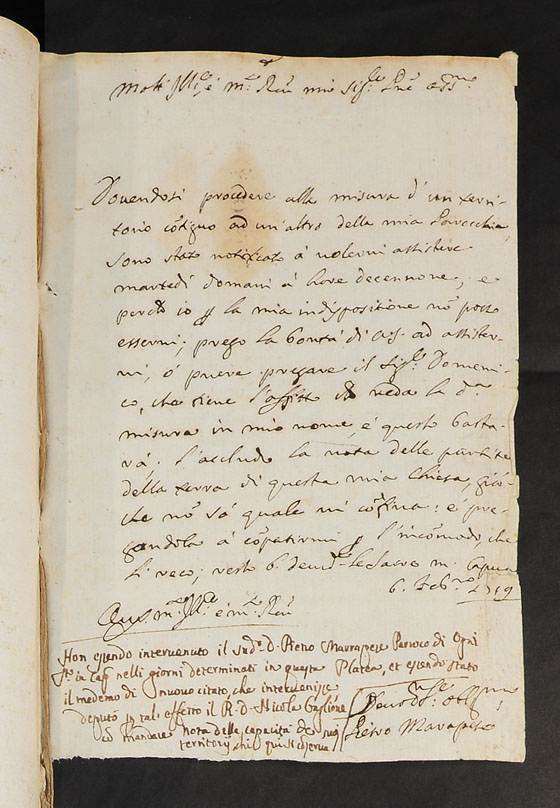 Molt Ill.e e m.to Rdo mio Sig.r Pne oss.mo
Dovendosi procedere alla misura d'un terri-
torio cõtiguo ad un'altro della mia Parocchia,
sono stato notificato à volervi assistere
martedì domani à hore decennove, e
perche io p la mia indispositione nõ posso
esservi; prego la bontà di V.S. ad assister-
vi, ò pure pregare il Sig.r Domeni-
co, che tiene l'affitto veda la d.a
misura in mio nome, e questo basta-
rà; l'accludo la nota delle partite
della terra di questa mia Chiesa, giac-
che nõ sò quale vi cõfina: e pre-
gandola à cõpatirmi p l'incõmodo, che
li reco; resto b. le mani. Capua
6. Feb.ro 1719
m.to Ill.e e m.to Rdo
Non essendo intervenuto il sud.o D. Pietro Marapese Parroco di Ogni
S.ti in Cap. nelli giorni determinati in questa Platea, et essendo stato
il medemo di nuovo citato, che intervenisse
deputò in tal effetto il R. D. Nicola Gaglione
et mandare nota della capacità de suoi
territorij, che qui si
Pietro Marapese